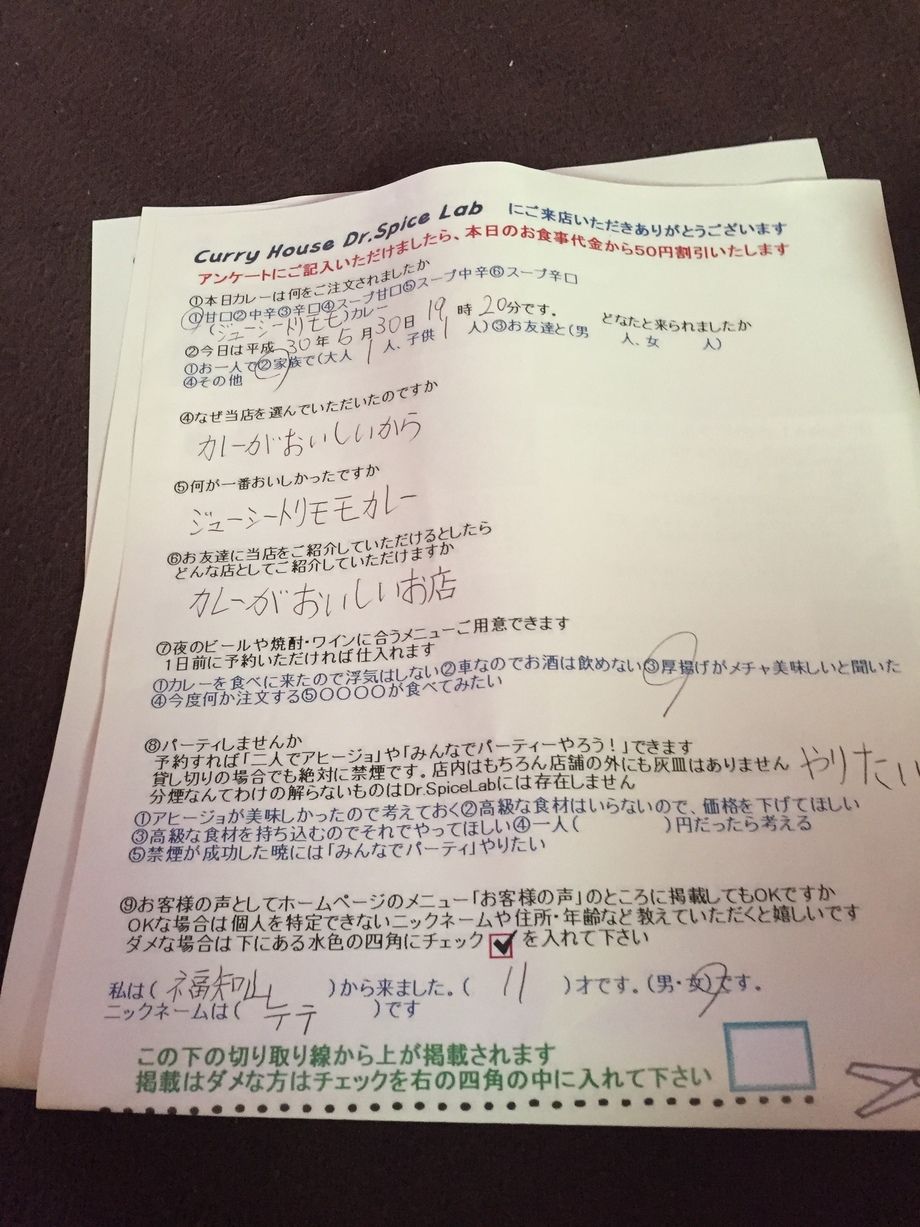 Curry House Dr.Spice Lab にご来店いただきありがとうございます
アンケートにご記入いただけましたら、本日のお食事代金から50円割引いたします
①本日カレーは何をご注文されましたか
①甘口②中辛③辛口④スープ甘口⑤スープ中辛⑥スープ辛口
(ジューシートリモモ)カレー
②今日は平成 30 年 5 月 30 日 19 時 20 分です。 どなたと来られましたか
①お一人で②家族で(大人 1 人、子供 1 人)③お友達と(男 人、女 人)
④その他
④なぜ当店を選んでいただいたのですか
カレーがおいしいから
⑤何が一番おいしかったですか
ジューシートリモモカレー
⑥お友達に当店をご紹介していただけるとしたら
どんな店としてご紹介していただけますか
カレーがおいしいお店
⑦夜のビールや焼酎・ワインに合うメニューご用意できます
1日前に予約いただければ仕入れます
①カレーを食べに来たので浮気はしない②車なのでお酒は飲めない③厚揚げがメチャ美味しいと聞いた
④今度何か注文する⑤〇〇〇〇が食べてみたい
⑧パーティしませんか
予約すれば「二人でアヒージョ」や「みんなでパーティーやろう!」できます
貸し切りの場合でも絶対に禁煙です。店内はもちろん店舗の外にも灰皿はありません やりたい
分煙なんてわけの解らないものはDr.SpiceLabには存在しません
①アヒージョが美味しかったので考えておく②高級な食材はいらないので、価格を下げてほしい
③高級な食材を持ち込むのでそれでやってほしい④一人( )円だったら考える
⑤禁煙が成功した暁には「みんなでパーティ」やりたい
⑨お客様の声としてホームページのメニュー「お客様の声」のところに掲載してもOKですか
OKな場合は個人を特定できないニックネームや住所・年齢など教えていただくと嬉しいです
ダメな場合は下にある水色の四角にチェック を入れて下さい
私は( 福知山 )から来ました。( 11 )才です。(男・女)です。
ニックネームは( テテ )です
この下の切り取り線から上が掲載されます
掲載はダメな方はチェックを右の四角の中に入れて下さい